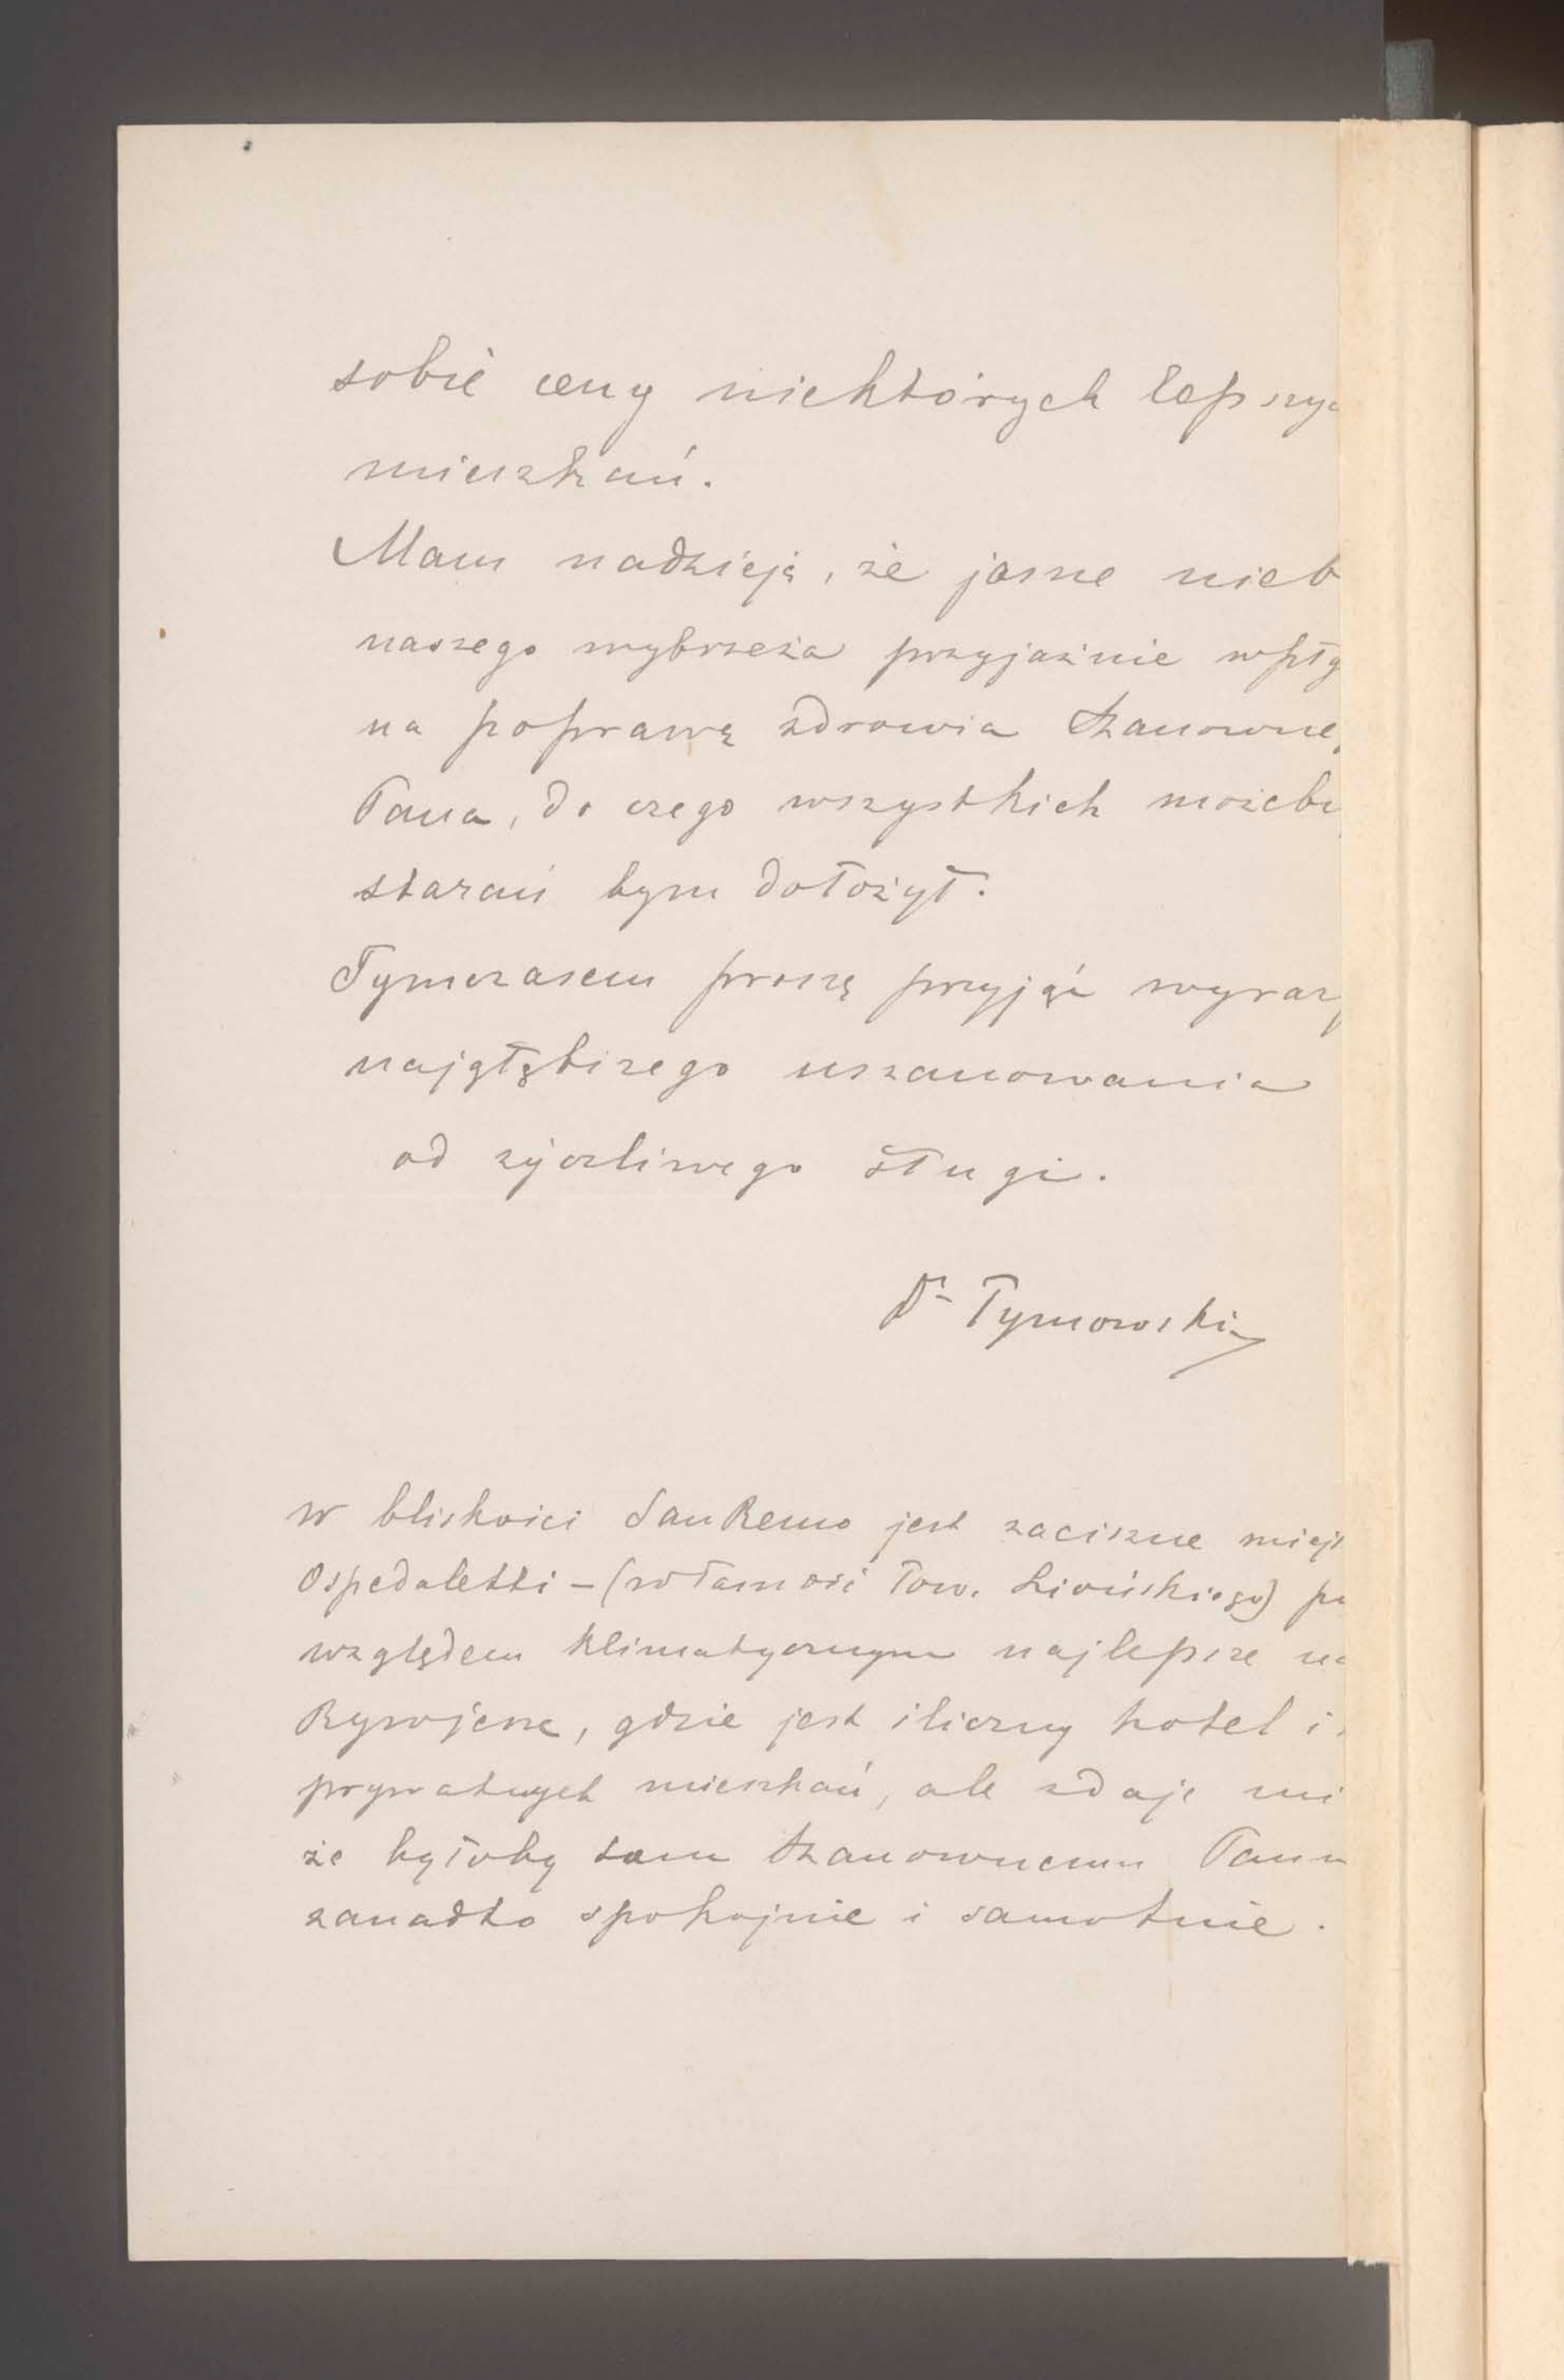 sobie ceny niektórych lepszyc
mieszkań.
Mam nadzieję, że jasne nieb
naszego wybrzeża przyjaźnie wpły
na poprawę zdrowia Szanowne
Pana, do czego wszystkich możeb
starań bym dołożył.
Tymczasem proszę przyjąć wyraz
najgłębszego uszanowania
od życzliwego sługi.
Dr Tymowski
w bliskości San Remo jest zaciszne miejs
Ospedaletti – (własność Tow. Liońskiego) po
względem klimatycznym najlepsze na
Rywjerze, gdzie jest śliczny hotel i
prywatnych mieszkań, ale zdaje mi
że byłoby tam Szanownemu Panu
zanadto spokojnie i samotnie.